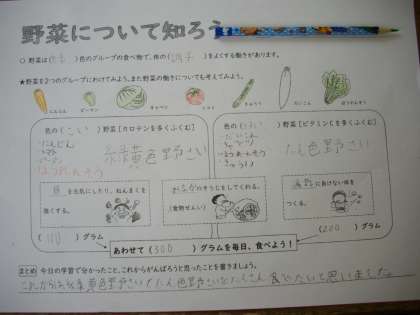 野菜について知ろう
○ 野菜は(みどり)色のグループの食べ物で、体の(調子)をよくする働きがあります。
★野菜を2つのグループにわけてみよう。また野菜の働きについても考えてみよう。
にんじん ピーマン キャベツ トマト きゅうり だいこん ほうれんそう
色の(こい)野菜[カロテンを多くふくむ]
にんじん
トマト
ピーマン
ほうれんそう
緑黄色野さい
色の(うすい)野菜[ビタミンCを多くふくむ]
だいこん
キャベツ
きゅうり
たん色野さい
を元気にしたり、ねんまくを強くする。
おなかのそうじをしてくれる。
(食物せんい)
病気に負けない体をつくる。
(100)グラム
(200)グラム
あわせて(300)グラムを毎日、食べよう!
まとめ 今日の学習で分かったこと、これからがんばろうと思ったことを書きましょう。
これからは緑黄色野さいやたん色野さいをたくさん食べたいと思いました。